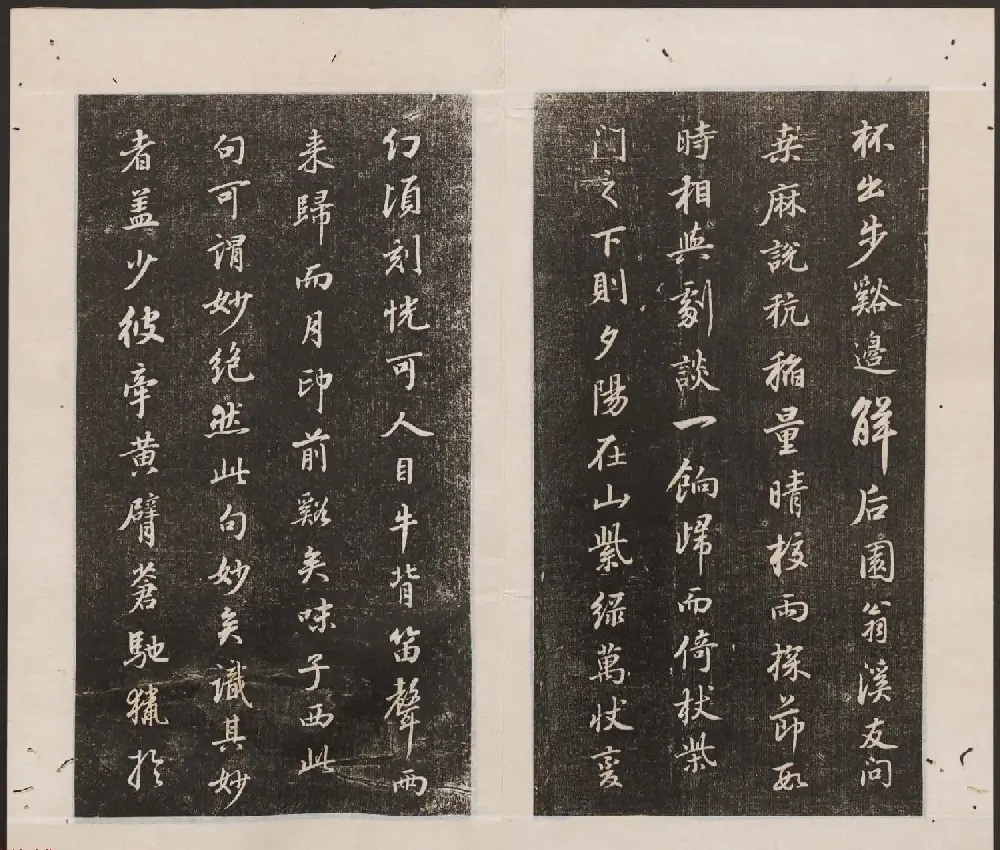 杯出步谿邊解后園翁溪友问
桒麻說秔稲量晴校雨探莭数
時相與劇談一餉歸而倚杖柴
门之下則夕陽在山紫绿萬状变
幻頃刻恍可人目牛背笛聲兩兩
来歸而月印前谿矣味子西此
句可謂妙绝然此句妙矣識其妙
者盖少彼牽黄臂蒼馳獵於